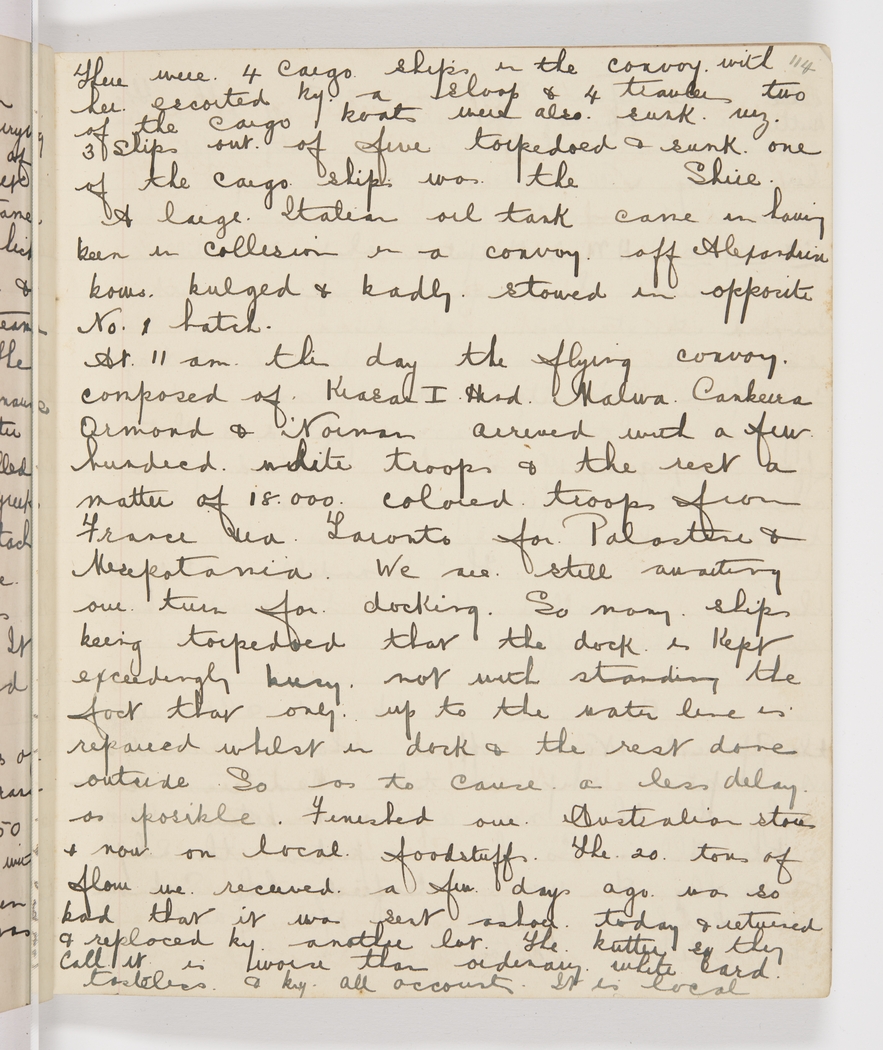 There were. 4 cargo. ships in the convoy. with 114
her. escorted by. a sloop & 4 trawlers two
of the cargo boats were also. sunk. viz.
3 Ships out. of five torpedoed & sunk. one
of the cargo. ships was. the Shire.
A large. Italian oil tank came in having
been in collision in a convoy. off Alexandria
bows. bulged & badly. stowed in opposite
No. 1 hatch.
At. 11 am. this day the flying convoy.
composed of. Kiasa I Hind. Malwa. Canberra
Ormond & Norman arrived with a few.
hundred. white troops & the rest a
matter of 18.000. colored. troops from
France via. Taronto for. Palastine &
Mesepotamia. We are. still awaiting
our. turn for. docking. So many. ships
being torpedoed that the dock. is Kept
exceedingly busy. not with standing the
fact that only. up to the water line is
repaired whilst in dock & the rest done
outside So as to cause. as less delay.
as posible. Finished our. Australian stores
& now. on local. foodstuffs. The. 20. tons of
flour we. received. a few. days ago. was so
bad that it was sent ashore. today & returned
& replaced by. another lot. The. butter as they
call it. is worse than ordinary. white lard.
tasteless. & by. all accounts. It is local